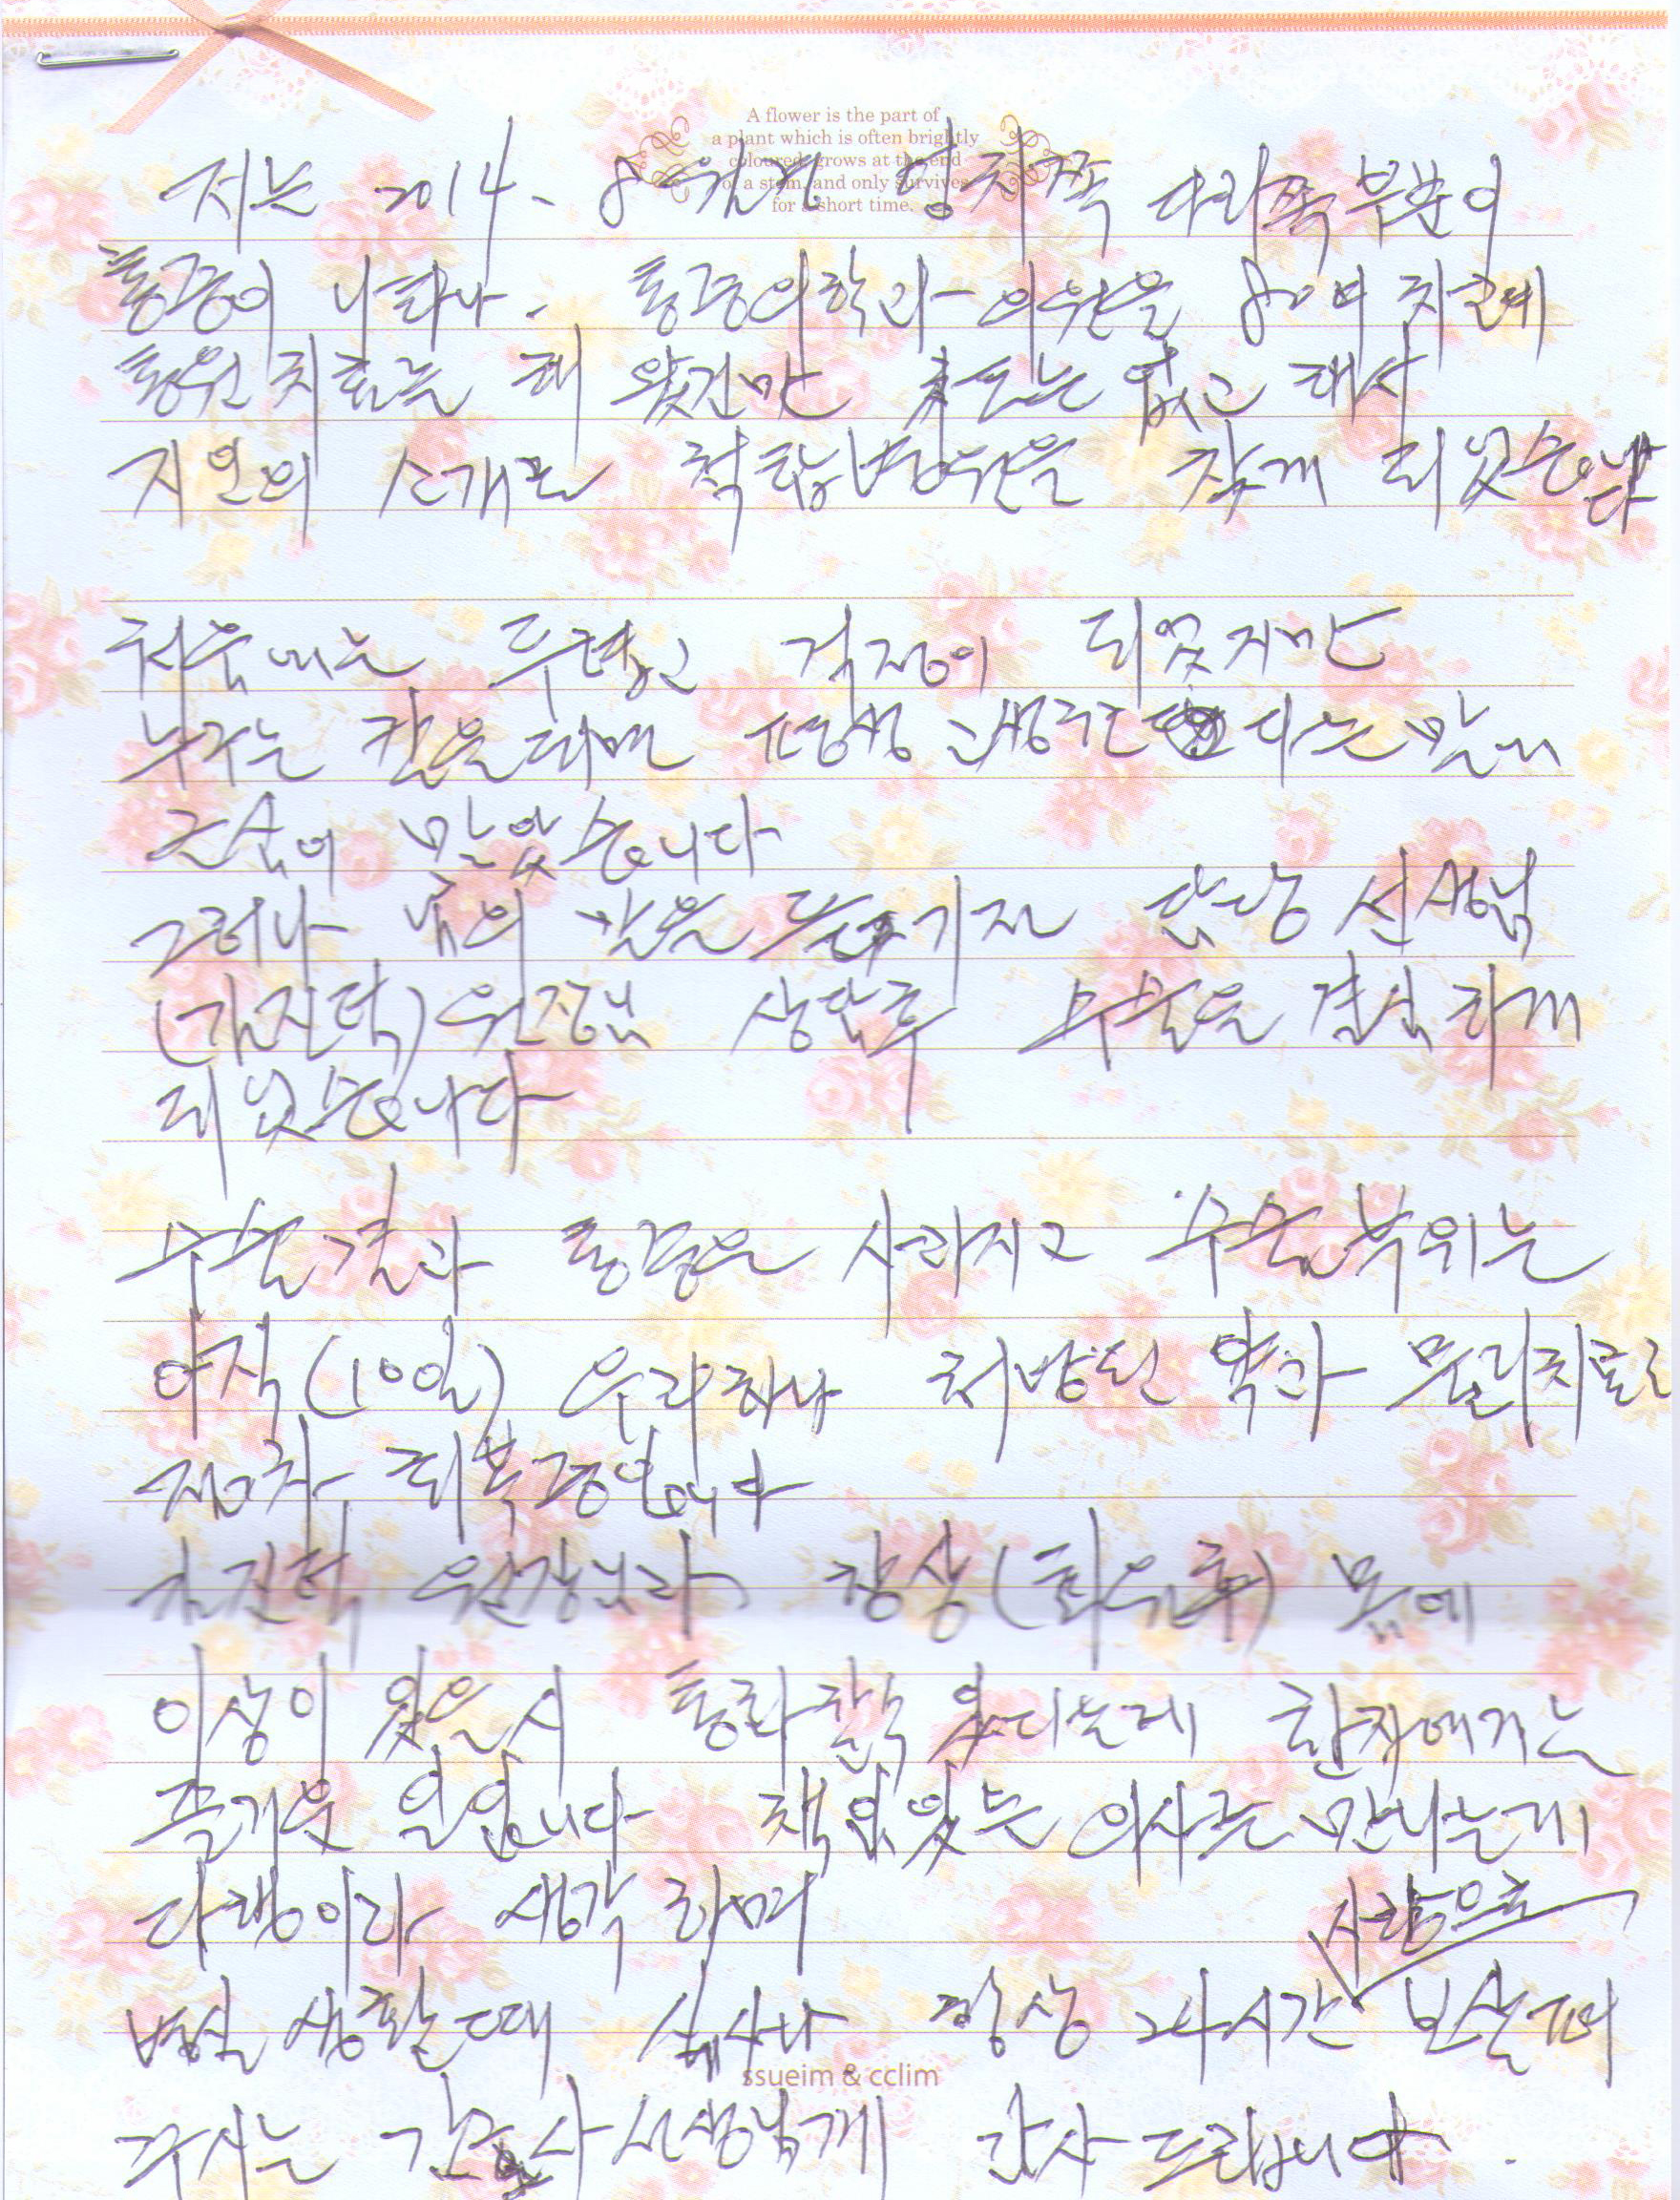 A flower is the part of
a plant which is often brightly
coloured, grows at the end
of a stem, and only survives
for a short time.
저는 2014. 8월경 양치쪽 다리쪽 부분이
통증이 나타나. 통증의학과 의원을 80여 차례
통원치료를 해 왔건만 효도는 없고 해서
지인의 소개로 척탑병원을 찾게 되었습니다
처음에는 두렵고 걱정이 되었지만
누구는 칼을 대면 평생 고생 다는 말이
근심이 많았습니다
그러나 남의 말을 듣기전 담당 선생님
(김진덕)원장님 상담후 수술을 결심하게
되었습니다
수술결과 통증은 사라지고 수술부위는
아직(10일) 우리하나 처방된 약과 물리치료로
점차 회복중입니다
김진덕 원장님과 항상(퇴원후) 몸에
이상이 있을시 통화할수 있다는게 환자에게는
즐거운 일입니다 책임있는 의사를 만나는게
다행이라 생각하며
사랑으로
병실 생활할때 식사나 항상 24시간 보살펴
주시는 간호사 선생님께 감사드립니다.
ssueim & cclim